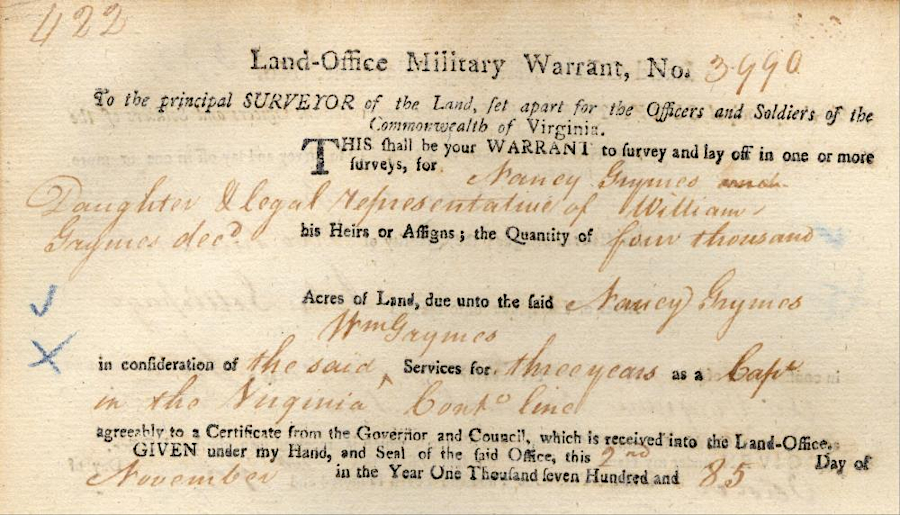 422
Land-Office Military Warrant, No. 3990
To the principal SURVEYOR of the Land, ſet apart for the Officers and Soldiers of the
Commonwealth of Virginia.
THIS ſhall be your WARRANT to ſurvey and lay off in one or more
ſurveys, for Nancy Grymes
Daughter & legal representative of William
Grymes decd. his Heirs or Aſſigns; the Quantity of four thousand
Acres of Land, due unto the ſaid Nancy Grymes
Wm Grymes
in conſideration of the said ‸ Services for three years as a Capt
in the Virginia Conto line
agreeably to a Certificate from the Governor and Council, which is received into the Land-Office.
GIVEN under my Hand, and Seal of the ſaid Office, this 2nd Day of
November in the Year One Thouſand ſeven Hundred and 85